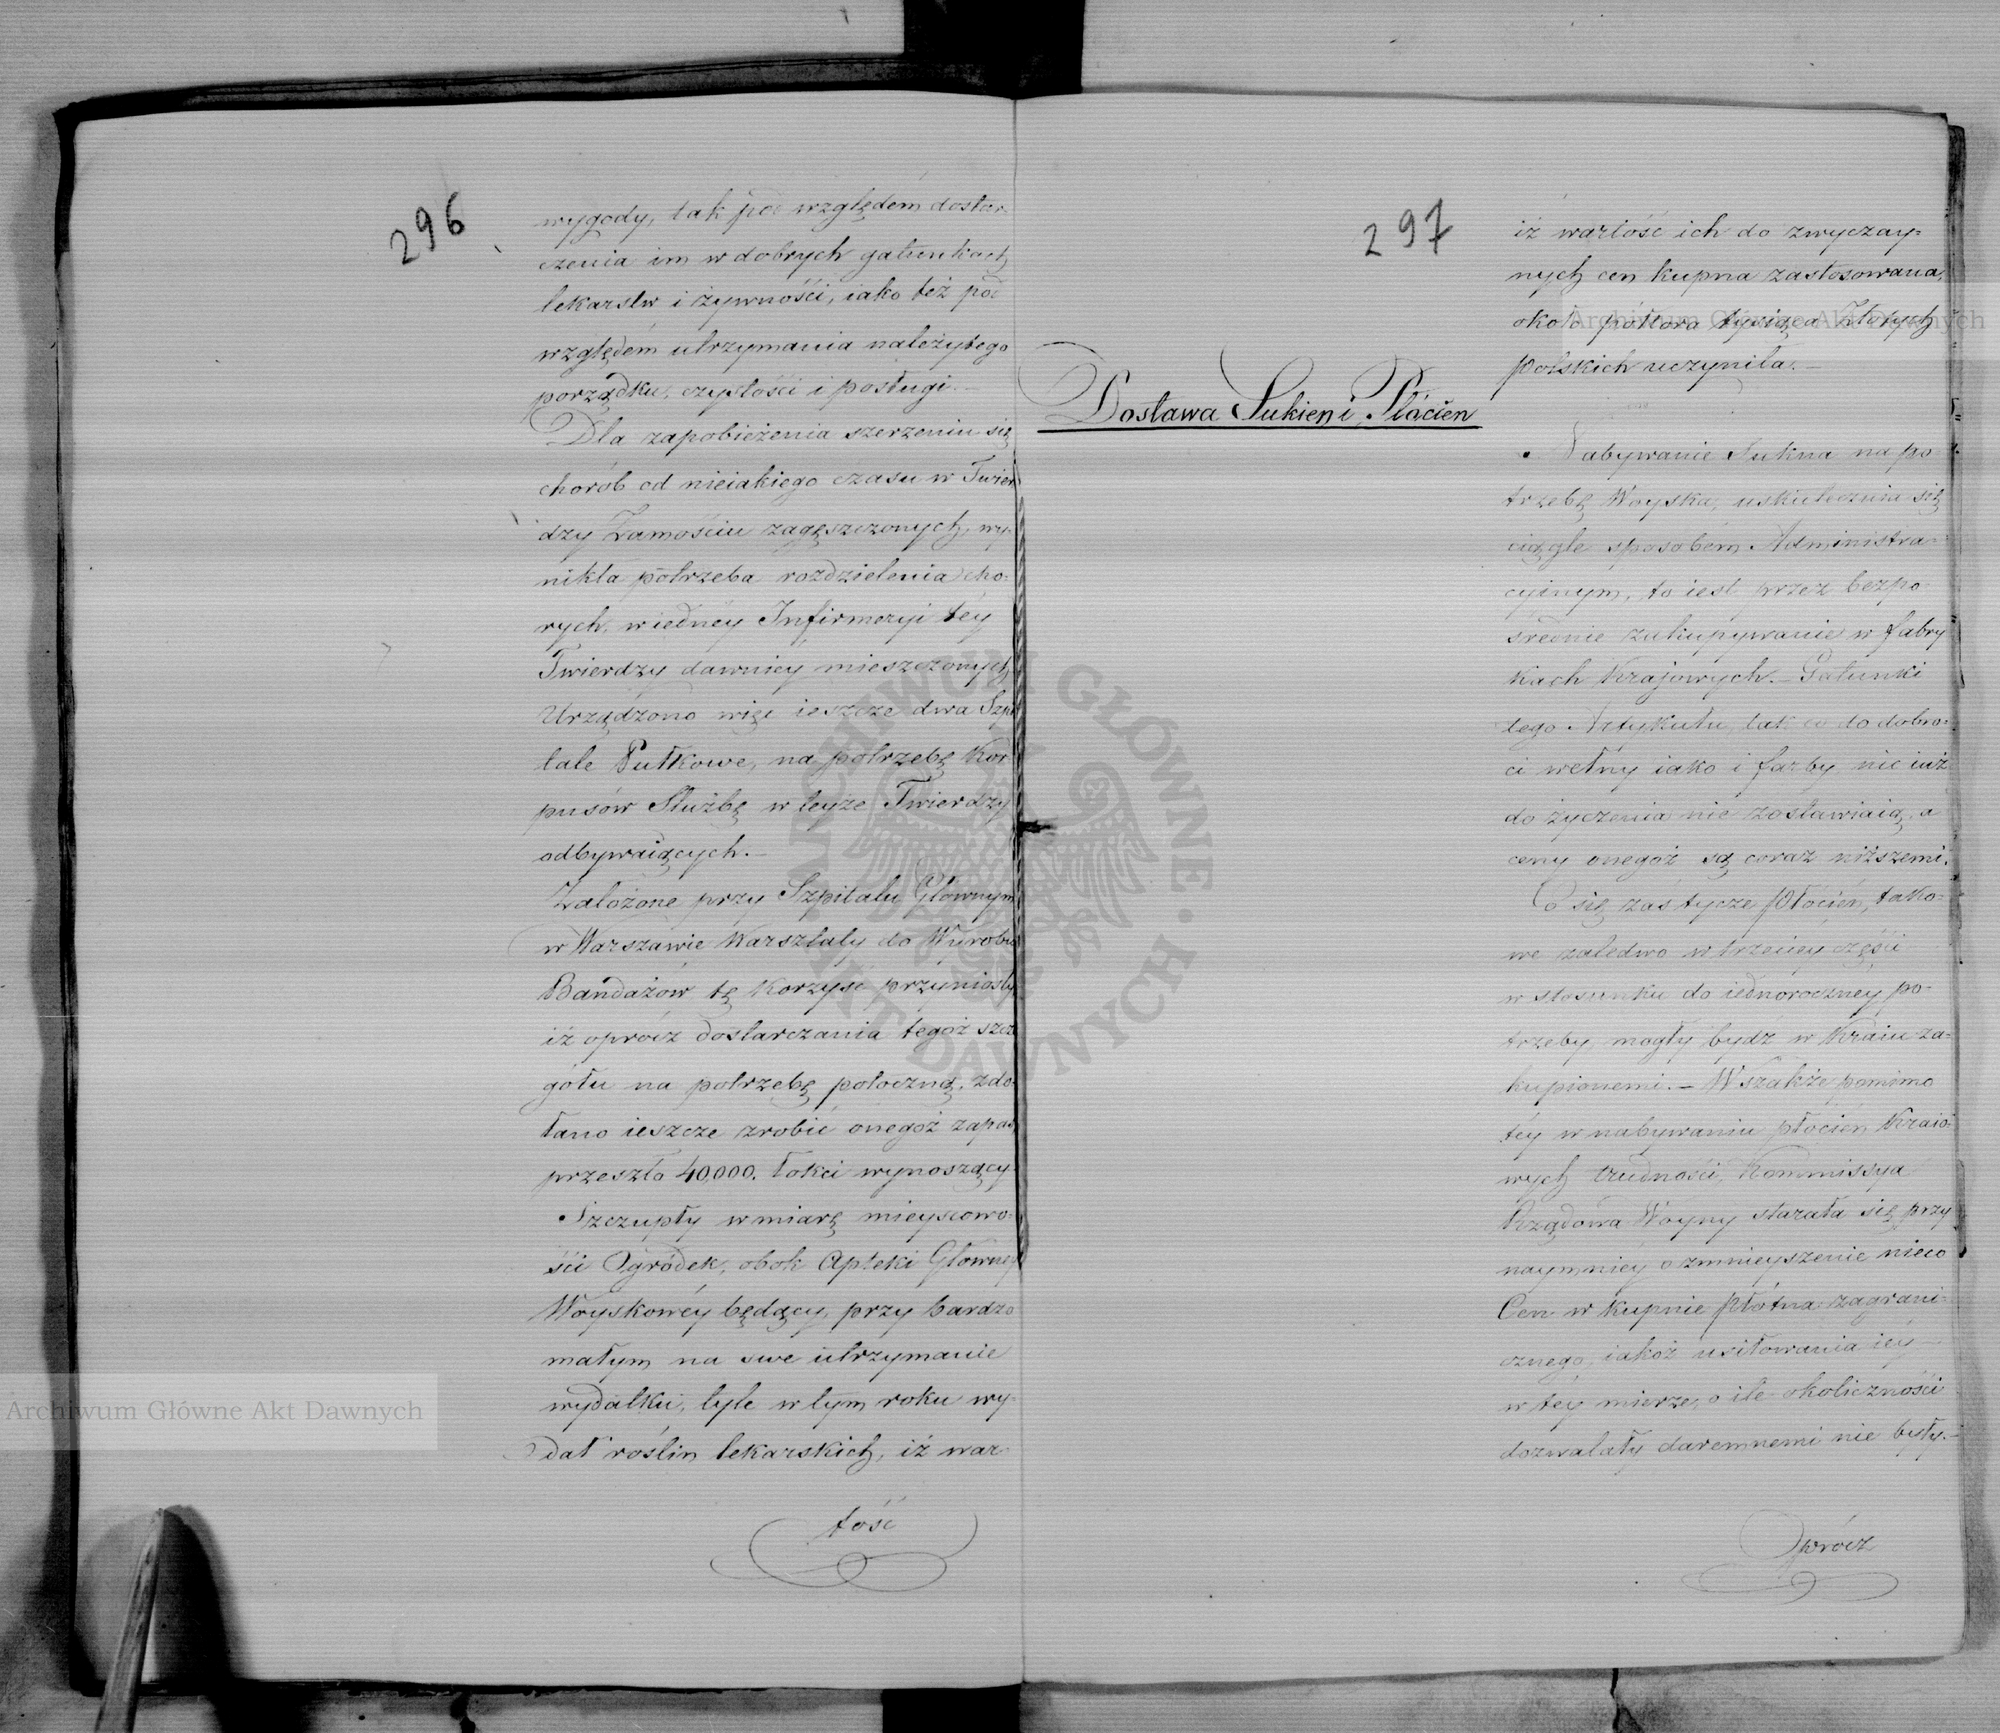 296
wygody, tak pod względem dostar-
czenia im w dobrych gatunkach
lekarstw i żywności, iako też pod
względem utrzymania należytego
porządku, czystości i posługi.—
Dla zapobieżenia szerzeniu się
chorób od nieiakiego czasu w Twier
dzy Zamościu zagęszczonych, wy-
nikła potrzeba rozdzielenia cho-
rych, w iednéy Infirmeryi téy
Twierdzy dawniéy mieszczonych
Urządzono więc ieszcze dwa Szpi
tale Pułkowe, na potrzebę Kor
pusów Służbę w teyże Twierdzy
odbywaiących.—
Założone przy Szpitalu Głównym
w Warszawie Warsztaty do Wyrobu
Bandażów tę korzyść przyniosły,
iż oprócz dostarczania tegoż szcze
gółu na potrzebę potoczną, zdo-
łano ieszcze zrobić onegoż zapas
przeszło 40,000. łokci wynoszący
Szczupły w miarę mieyscowo-
ści Ogródek, obok Apteki Główney
Woyskowéy będący, przy bardzo
małym na swe utrzymanie
wydatku, tyle w tym roku wy-
dał roślin lekarskich, iż war-
tość
297
iż wartość ich do zwyczay-
nych cen kupna zastosowana,
około półtora tysiąca Złotych
polskich uczyniła.—
Dostawa Sukien i Płócien
Nabywanie Sukna na po-
trzebę Woyska, uskutecznia się
ciągle sposobem Administra-
cyinym, to iest przez bezpo-
srednie zakupywanie w fabry
kach Krajowych.— Gatunki
tego Artykułu, tak co do dobro-
ci wełny iako i farby, nic iuż
do życzenia nie zostawiaią, a
ceny onegoż są coraz niższemi.
Co się zas tycze Płócien, tako-
we zaledwo w trzeciey części
w stosunku do iednoroczney po-
trzeby, mogły bydź w Kraiu za-
kupionemi.— Wszakże pomimo
téy w nabywaniu płócien Kraio-
wych trudności, Kommissya
Rządowa Woyny starała się przy
naymniéy o zmnieyszenie nieco
Cen w kupnie Płótna zagrani-
cznego, iakoż usiłowania iéy
w téy mierze, o ile okoliczności
dozwalały daremnemi nie były.—
Oprócz
Archiwum Główne Akt Dawnych
Archiwum Główne Akt Dawnych
ARCHIWUM GŁÓWNE • AKT DAWNYCH •